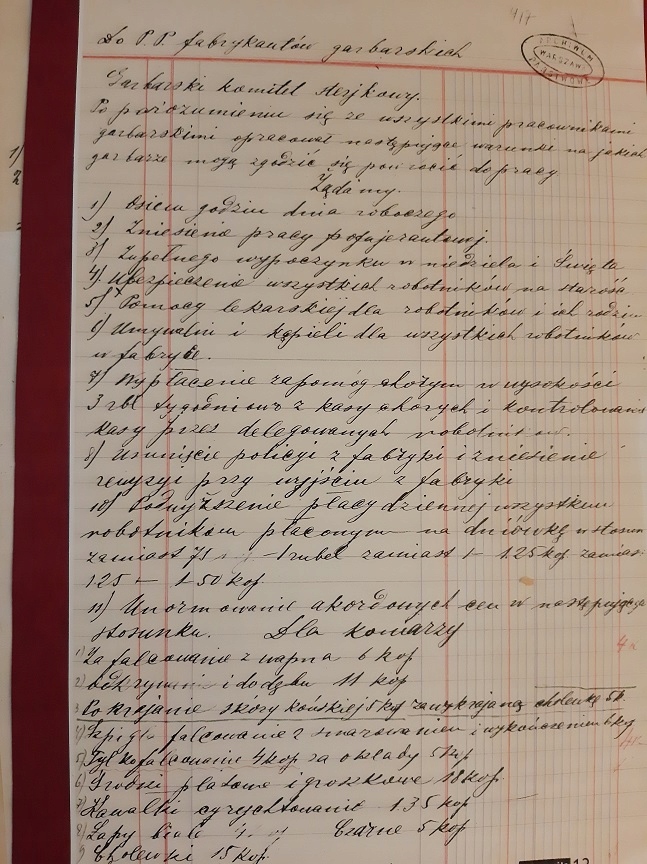 417
Do P.P. fabrykantów garbarskich
ARCHIWUM
WARSZAWA
PAŃSTWOWE
Garbarski komitet strejkowy.
Po porozumieniu się ze wszystkimi pracownikami
garbarskimi opracował następujące warunki na jakich
garbarze mogą zgodzić się powrócić do pracy
Żądamy.
1) Osiem godzin dnia roboczego
2) Zniesienie pracy pofajerantowej.
3) Zupełnego wypoczynku w niedziela i Święta
4) Ubezpieczenie wszystkich robotników na starość
5) Pomocy lekarskiej dla robotników i ich rodzin
6) Umywalni i kąpieli dla wszystkich robotników
w fabryce.
7) Wypłacenie zapomóg chorym w wysokości
3 rbl tygodniowo z kasy chorych i kontrolowanie
kasy przez delegowanych robotników.
8) Usunięcie policyi z fabryki i zniesienie
rewyzyi przy wyjściu z fabryki
10) Podwyższenie płacy dziennej wszystkim
robotnikom płaconym na dniówkę w stosun
zamiast 75 – 1 rubel zamiast 1 – 1.25 kop zamias
1.25 – 1.50 kop
11) Unormowanie akordowych cen w następującza
stosunku. Dla komarzy
1) Za falcowanie z wapna 6 kop
2) odkrywanie i do dębu 11 kop
3 Po krajanie skóry końskiej 5 kop za wykrajaną cholewkę 5 k.
4) Szpigle falcowanie z smarowaniem i wykończeniem 6 kop
5) Tylko falcowanie 4 kop za okłady 5 kop
6) platowe i groszkowe 18 kop.
7) Kawałki cyrychtowanie 1.35 kop
8) Łapy białe Czarne 5 kop
9 Cholewki 15 kop.